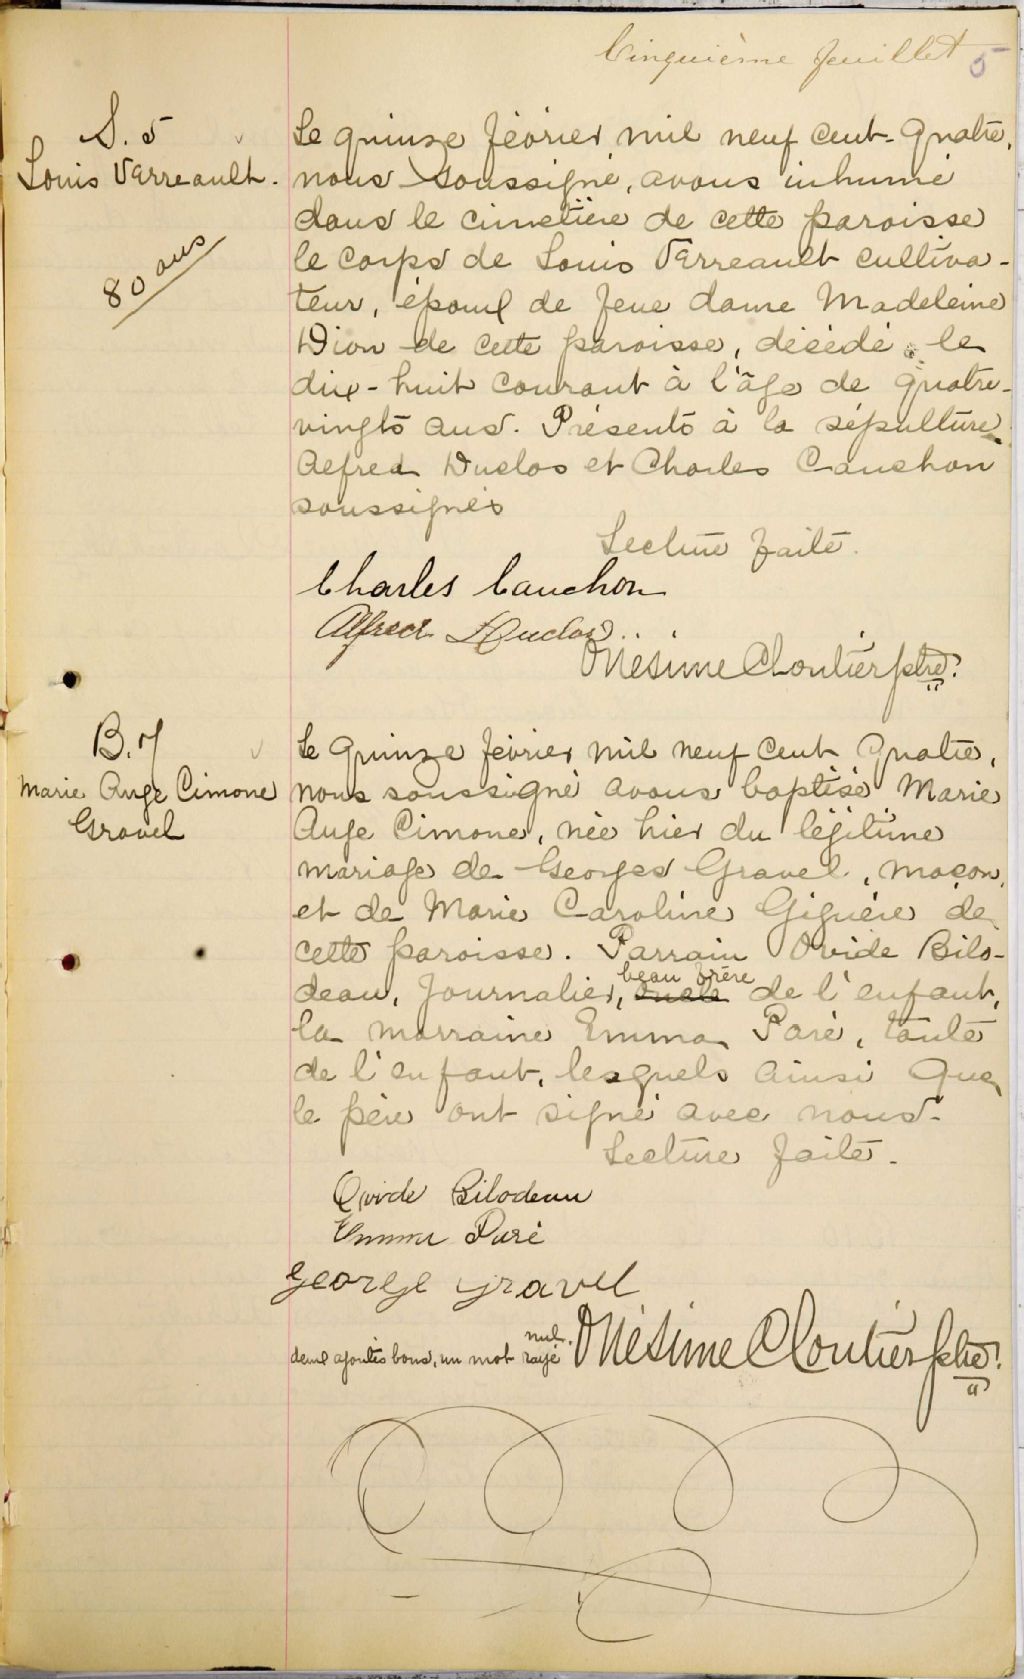 Cinquième feuillet 5
S. 5
Louis Verreault.
80 ans
Le quinze février mil neuf cent-quatre,
nous soussigné, avons inhumé
dans le cimetière de cette paroisse
le corps de Louis Verreault cultiva-
teur, époux de feue dame Madeleine
Dion de cette paroisse, décédé le
dix-huit courant à l'âge de quatre-
vingts ans. Présents à la sépulture
Alfred Duclos et Charles Cauchon
soussignés
Lecture faite.
Charles Cauchon
Alfred Duclos
Onésime Cloutier ptre.
B. 7
Marie Ange Cimone
Gravel
Le quinze février mil neuf cent quatre,
nous soussigné avons baptisé Marie
Ange Cimone, née hier du légitime
mariage de Georges Gravel, maçon,
et de Marie Caroline Giguère de
cette paroisse. Parrain Ovide Bilo-
beau frère
deau, journalier, oncle de l'enfant,
la marraine Emma Paré, tante
de l'enfant, lesquels ainsi que
le père ont signé avec nous.
Lecture faite.
Ovide Bilodeau
Emma Paré
George Gravel
nul.
deux ajoutés bons, un mot rayé Onésime Cloutier ptre.